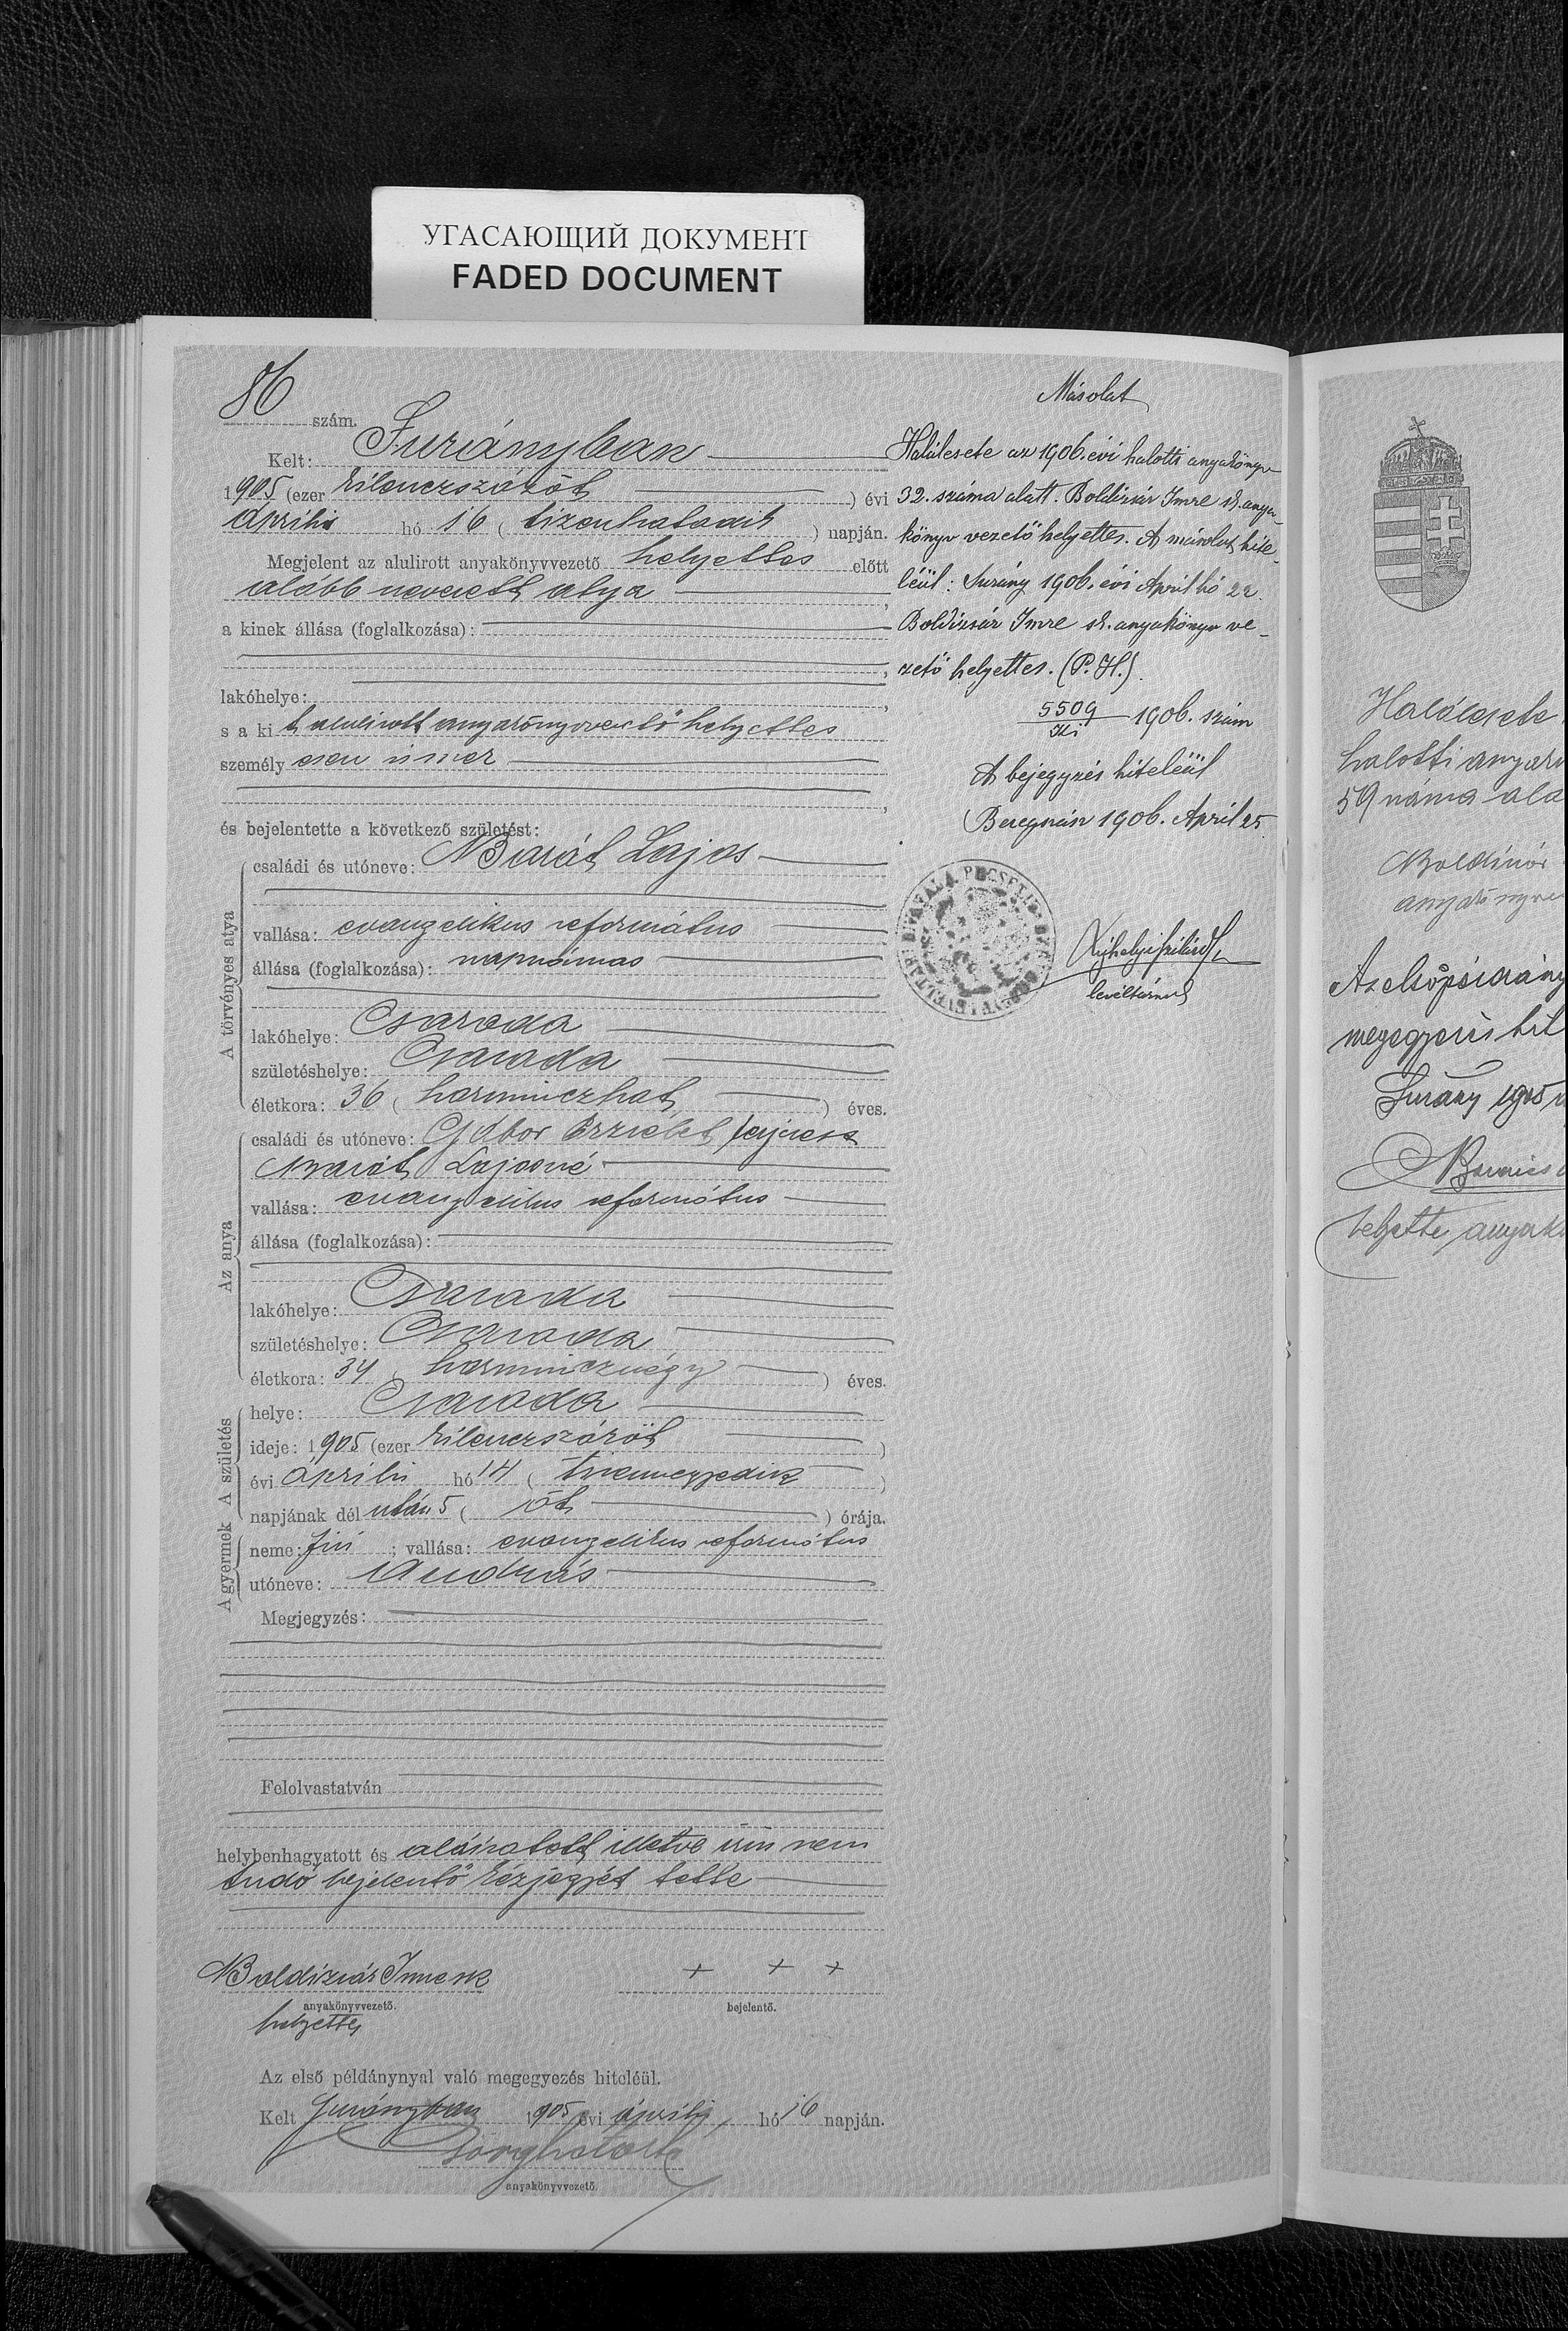 УГАСАЮЩИЙ ДОКУМЕНТ
FADED DOCUMENT
86 szám.
Kelt: Surányban
1905 (ezer kilenczszázöt ) évi
április hó 16 ( tizenhatodik ) napján.
Megjelent az alulirott anyakönyvvezető helyettes előtt
alább nevezett atya ,
a kinek állása (foglalkozása):
,
lakóhelye: ,
s a kit alulirott anyakönyvvezető helyettes
személyesen ismer
,
és bejelentette a következő születést:
A törvényes atya
családi és utóneve: Barát Lajos
vallása: evangelikus református
állása (foglalkozása): napszámos
lakóhelye: Csaroda
születéshelye: Csaroda
életkora: 36 ( harminczhat ) éves.
Az anya
családi és utóneve: Gábor Erzsébet férjezett
Barát Lajosné
vallása: evangelikus református
állása (foglalkozása):
lakóhelye: Csaroda
születéshelye: Csaroda
életkora: 34 ( harmincznégy ) éves.
A születés
helye: Csaroda
ideje: 1905 (ezer kilenczszázöt )
évi április hó 14 ( tizennegyedik )
napjának dél után 5 ( öt ) órája.
A gyermek
neme: fiú ; vallása: evangelikus református
utóneve: András
Megjegyzés:
Felolvastatván
helybenhagyatott és aláiratott illetve irni nem
tudó bejelentő kézjegyét tette
Boldizsár Imre sk
+ + +
anyakönyvvezető.
bejelentő.
helyettes
Az első példánynyal való megegyezés hiteléül.
Kelt Surányban 1905 évi április hó 16 napján.
anyakönyvvezető.
Másolat
Halálesete az 1906. évi halotti anyakönyv
32. száma alatt. Boldizsár Imre sk. anya-
könyv vezető helyettes. A másolat hite-
léül: Surány 1906. évi April hó 22.
Boldizsár Imre sk. anyakönyv ve-
zető helyettes. (P. H.).
5509
ki
1906. szám
A bejegyzés hiteléül
Beregszász 1906. April 25.
levéltárnok
Halálesete
halotti anyak
59 száma ala
Boldizsár
anyakönyve
Az első példány
megegyezés hit
Surány 1905
helyettes anyak